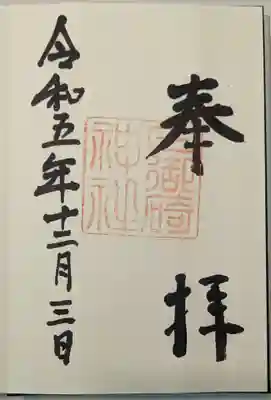 奉拝
御
神社
令和五年十二月三日